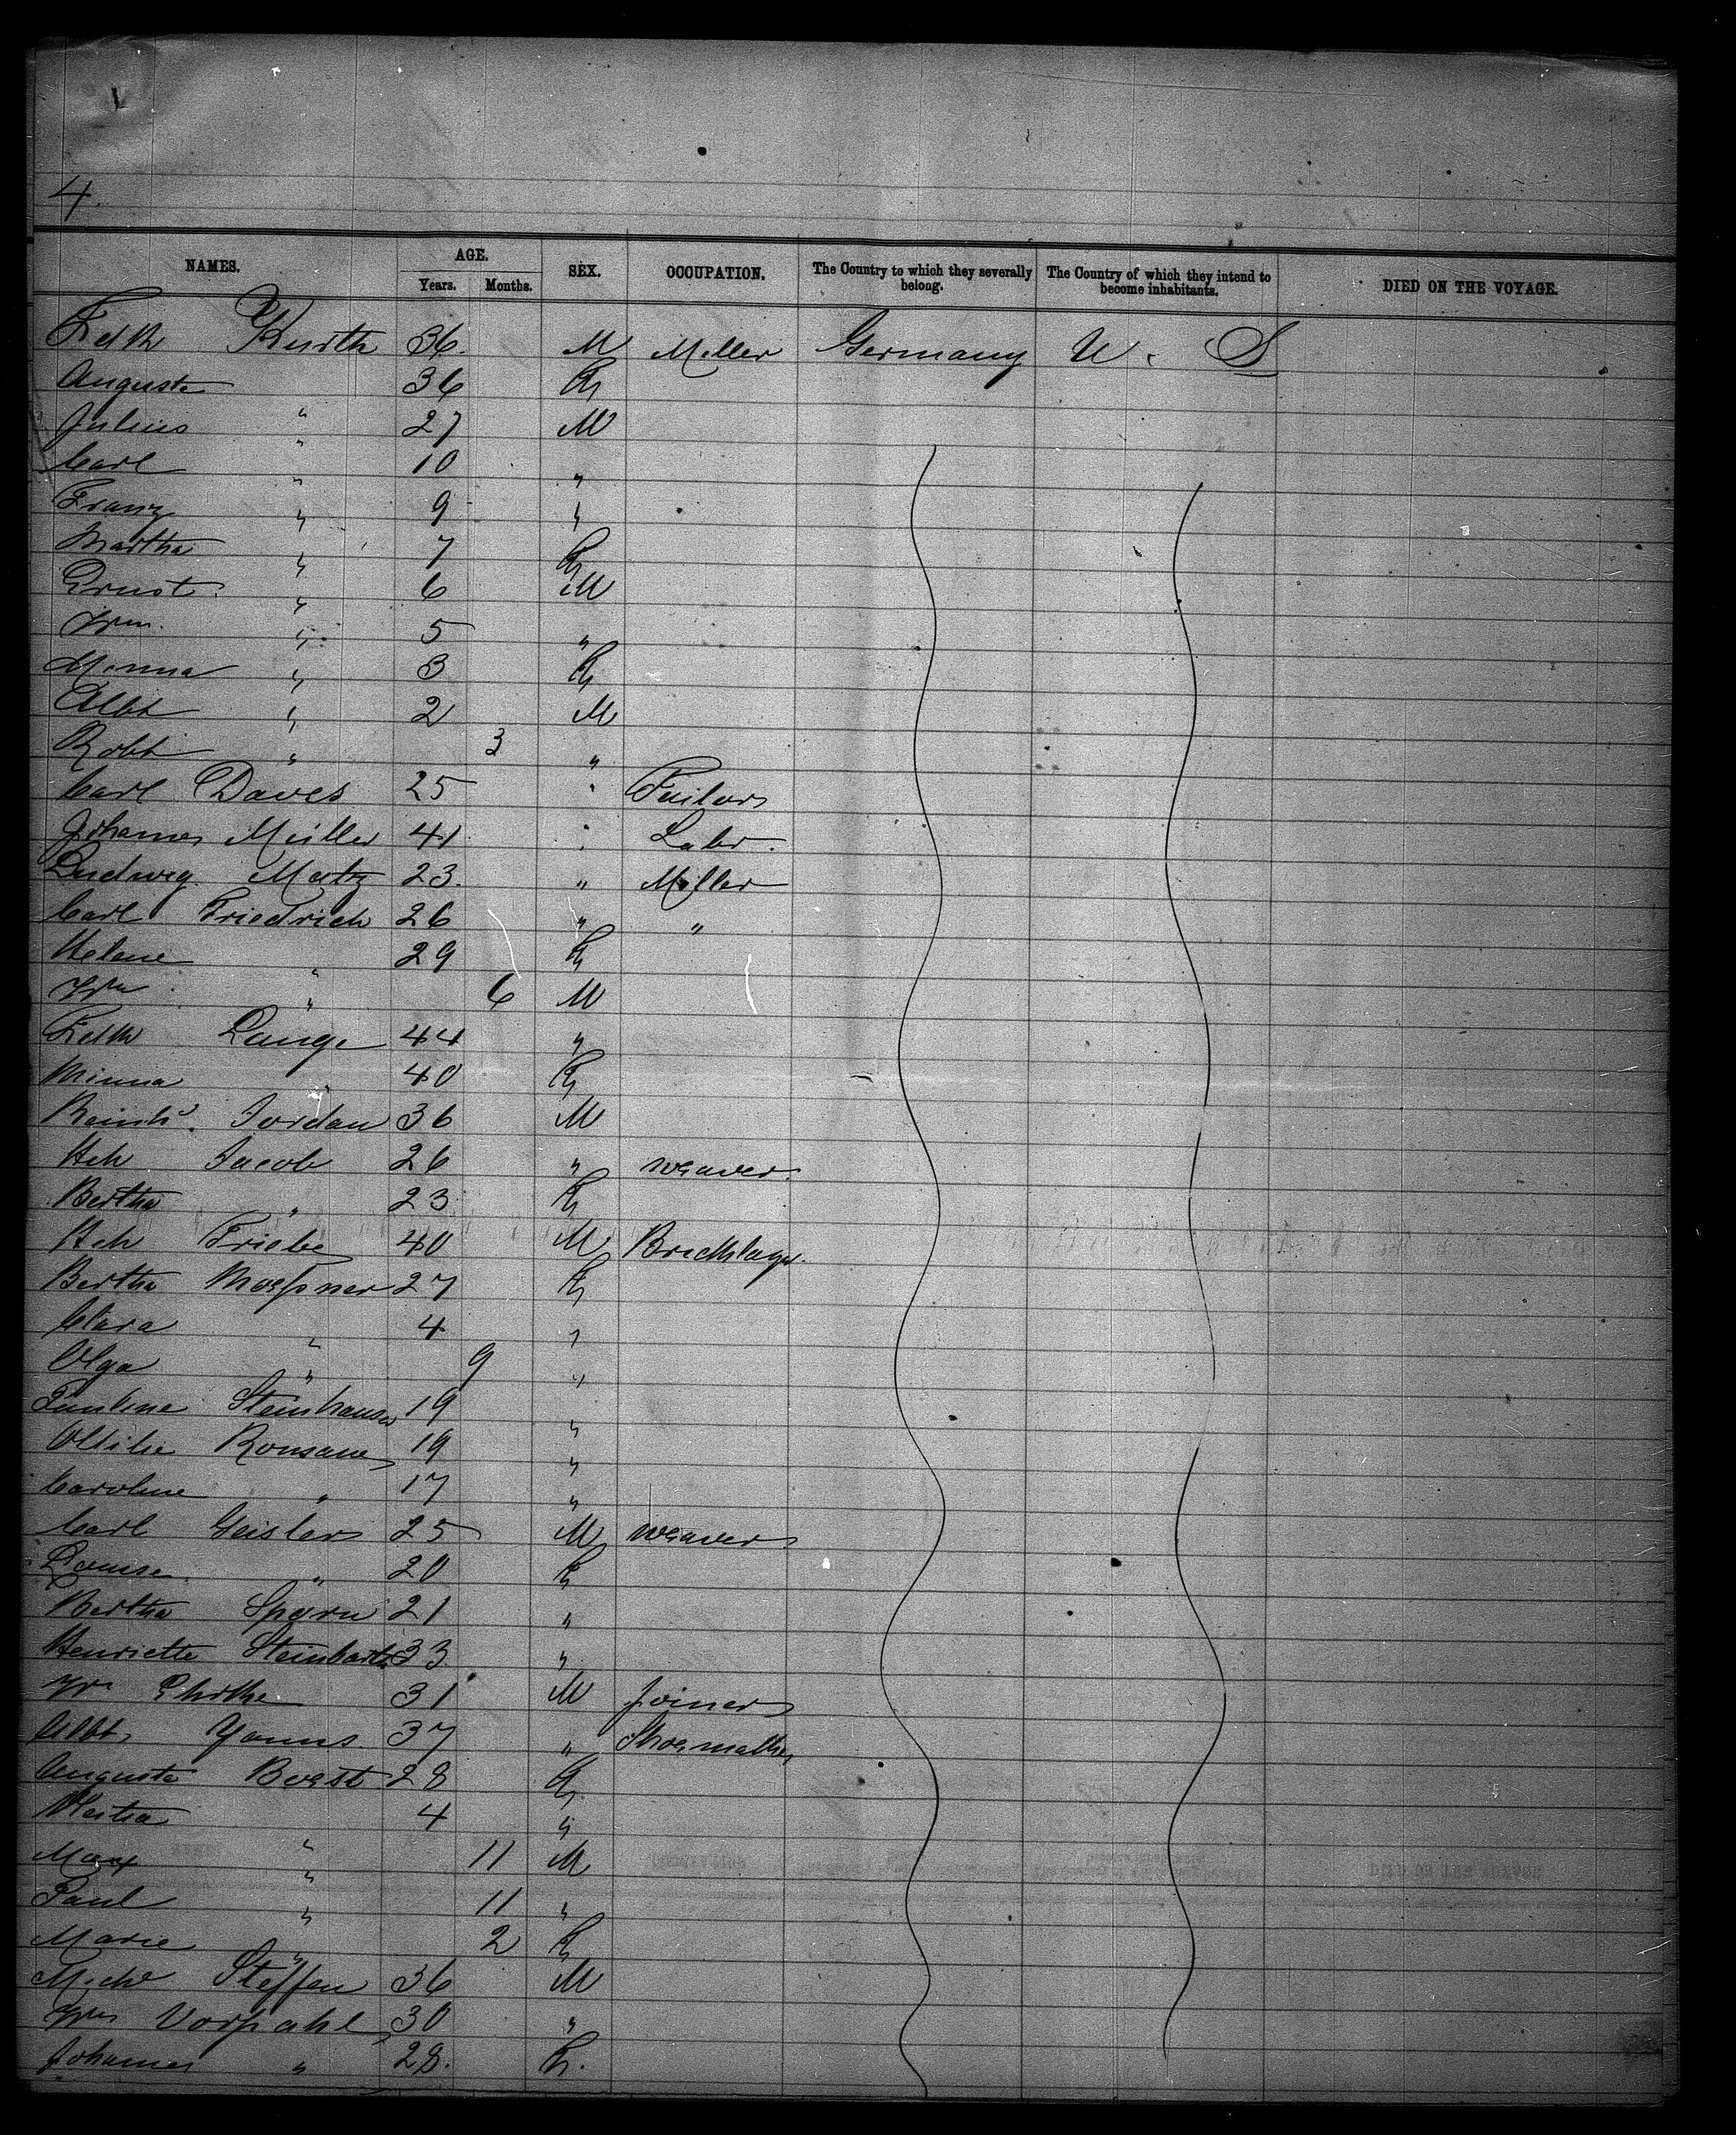 4.
NAMES. AGE. SEX. OCCUPATION. The Country to which they severally belong. The Country of which they intend to become inhabitants. DIED ON THE VOYAGE.
Years. Months.
Kurth 36. M Miller Germany U. S
Auguste " 36 F
Julius " 27 M
Carl " 10 "
Franz " 9 "
Martha " 7 F
Ernst " 6 M
Wm. " 5 "
Minna " 3 F
Albt " 2 M
Robt " 3 "
Carl Daves 25 " Tailor
Johannes Müller 41 " Labr.
Ludwig Matz 23. " Miller
Carl Friedrich 26 " "
Helene " 29 F
Wm " 6 M
Lange 44 "
Minna " 40 F
Reinhd. Jordan 36 M
Hch Jacob 26 " weaver.
Bertha " 23 F
Hch Friebe 40 M Bricklayer.
Bertha 27 F
Clara " 4 "
Olga " 9 "
Pauline Steinhauser 19 "
Ottilie 19 "
Caroline " 17 "
Carl Geisler 25 M weaver
Louise " 20 F
Bertha 21 "
Henriette Steinbarth 33 "
Wm 31 M Joiner
Albt. 37 " Shoemaker
Auguste 28 F
" 4 "
Max " 11 M
Paul " 11 "
Marie " 2 F
Michl Steffen 36 M
Wm Vorpahl 30 "
" 28. F.